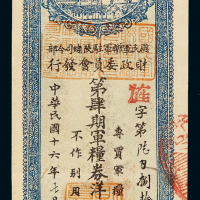 國民軍聯軍駐陝總司令部
財政委員會發行
字第陸百捌拾
專買軍糧
不作別用
第肆期軍糧券洋
中華民國十六年